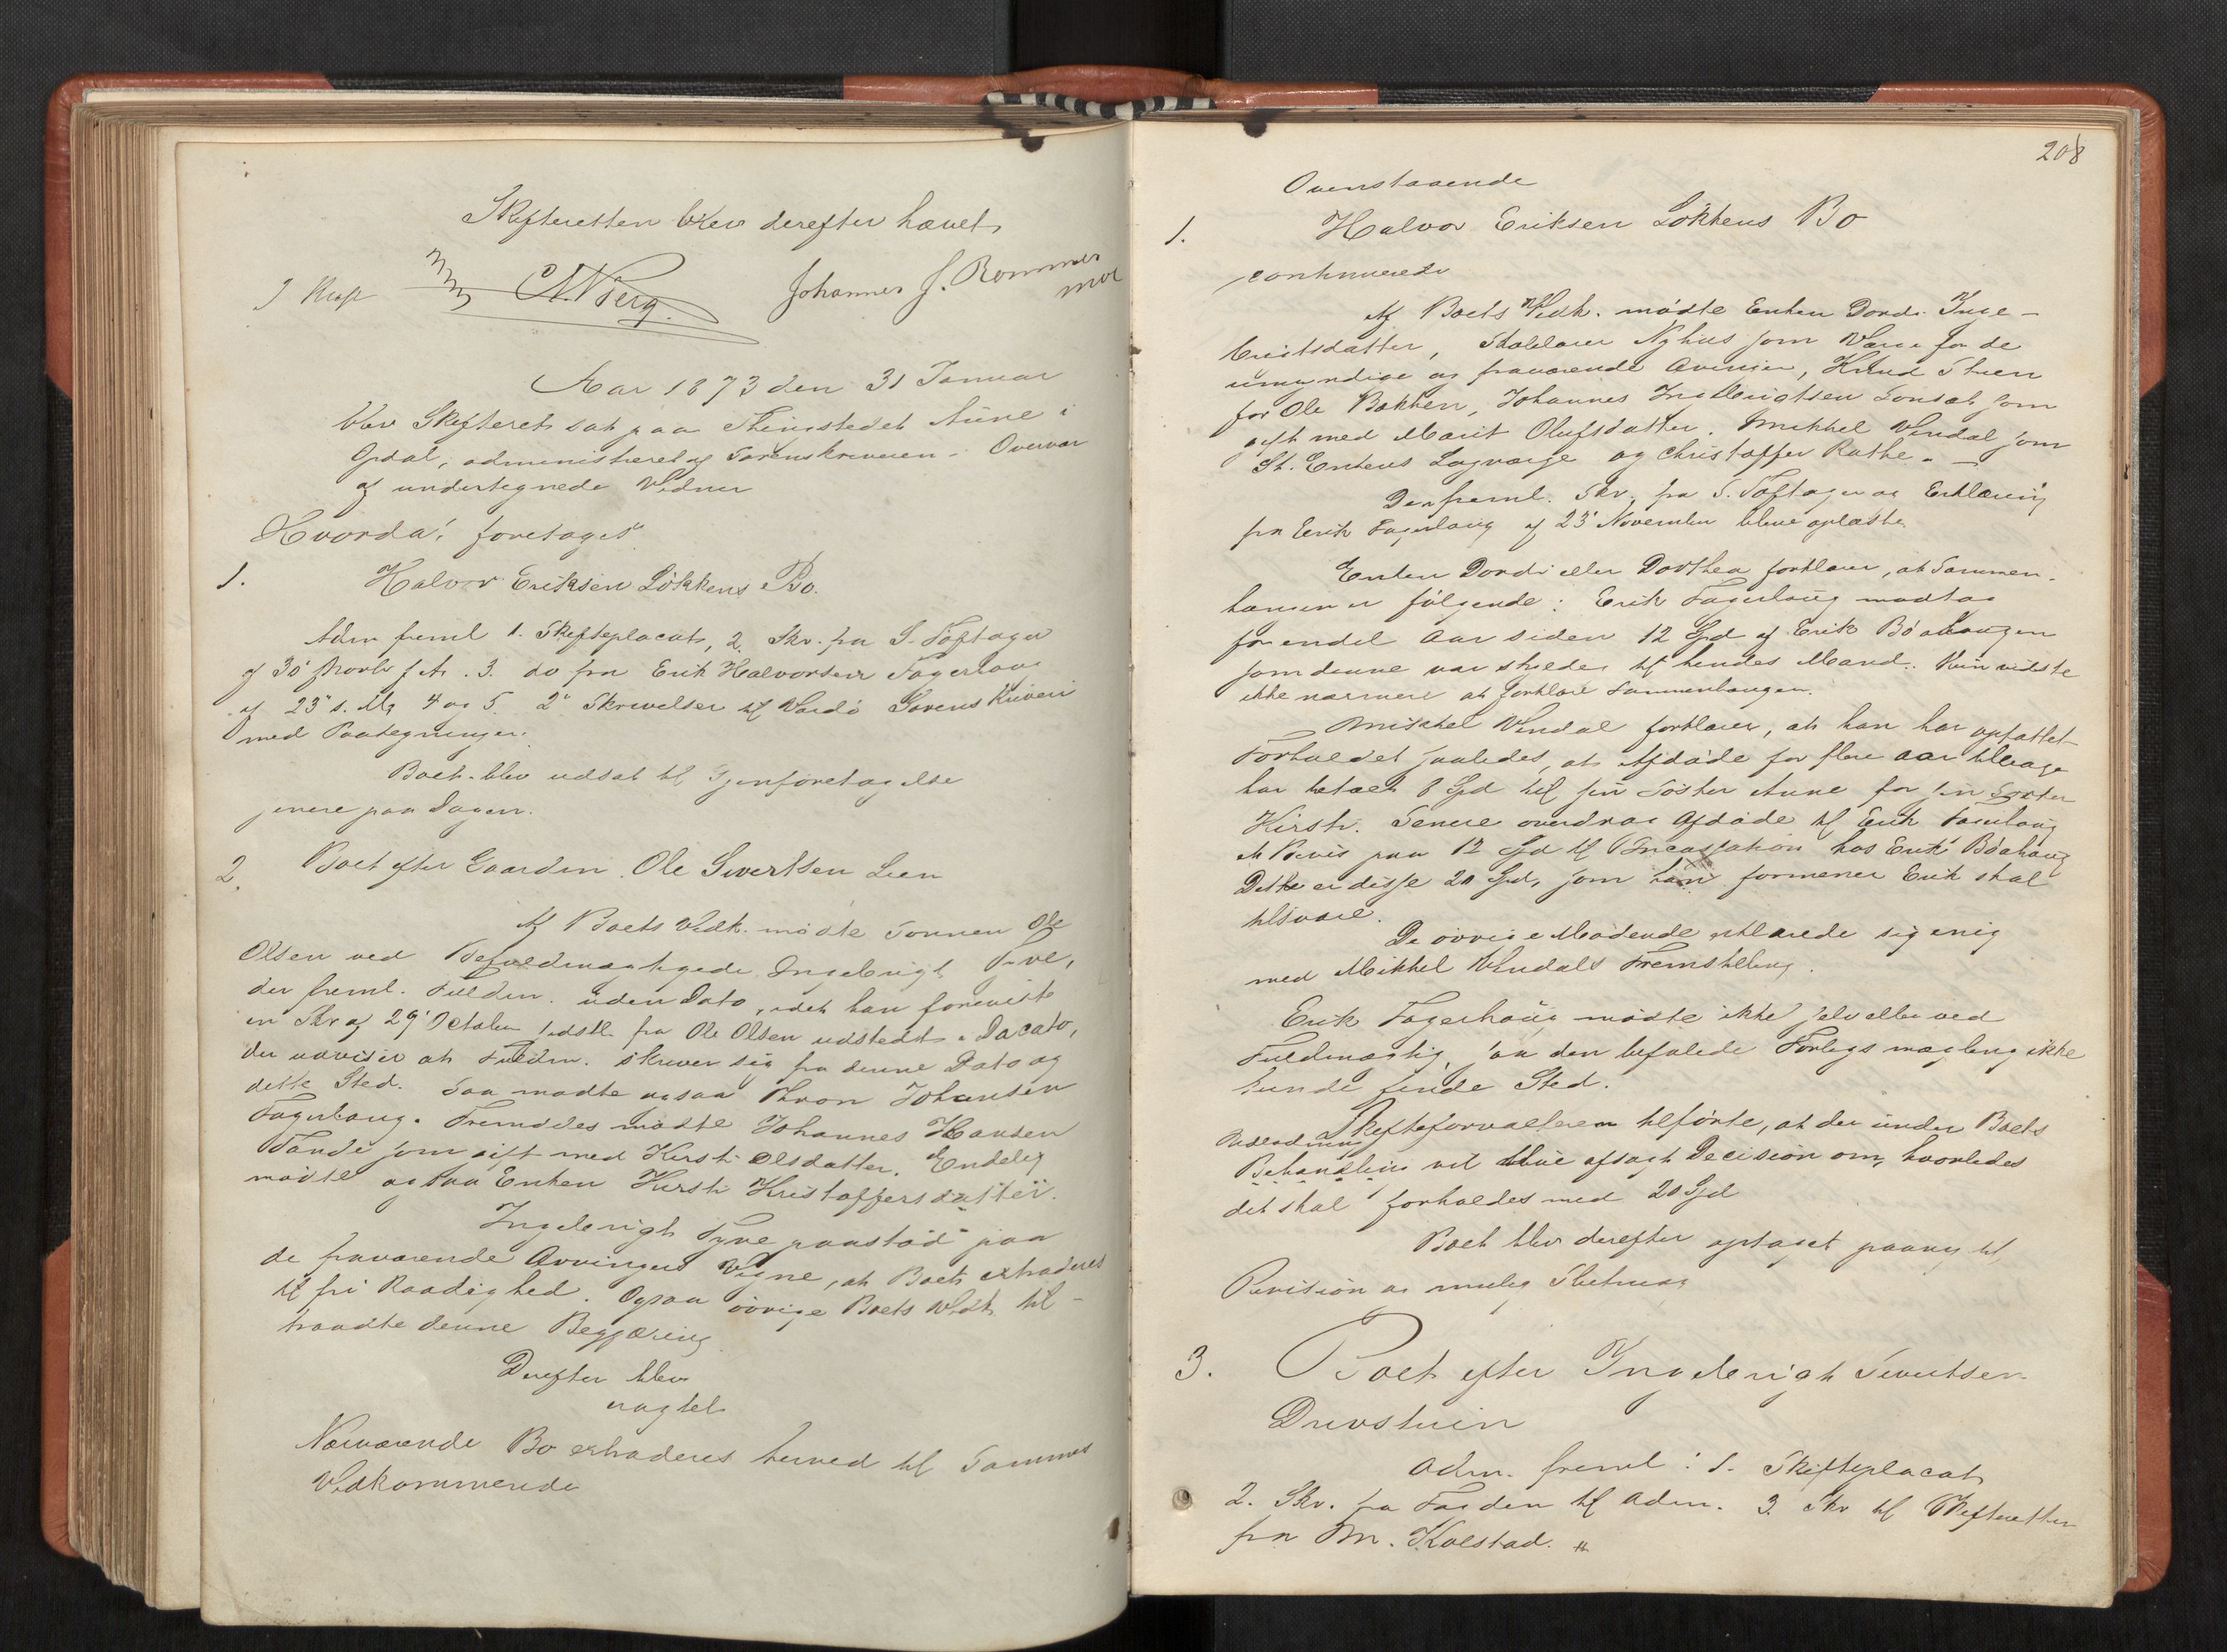 Skifteretten blev derefter hævet
J Kraft C. N. Berg. Johannes J. Rommes
moe
Aar 1873 den 31 Januar
blev Skifteret sat paa Thingstedet Aune i
Opdal, administreret af Sorenskriveren i Overvær
af undertegnede Vidner
Hvorda! foretoges
1. Halvor Eriksen Løkkens Bo.
Adm freml 1. Skifteplacat, 2. Skr. fra S. Toftager
af 30' Novbr f. A. 3. do fra Erik Halvorsen Fagerhaug
af 23' s. M, 4 og 5. 2 Skrivelser til Vardø Sorenskriveri
med Paategninger.
Boet blev udsat til Gjenforetagelse
senere paa Dagen.
2. Boet efter Gaardm. Ole Sivertsen Lien
Af Boets Vedk. mødte Sønnen Ole
Olsen ved Befuldmægtigede Ingebrigt
der freml. Fuldm. uden Dato, idet han foreviste
en Skr af 29' October sidstl. fra Ole Olsen udstedt i Dacato,
der udviser at Fuldm. skriver sig fra denne Dato og
dette Sted. Saa mødte ogsaa Thron Johansen
Fagerhaug. Fremdeles mødte Johannes Hansen
Tande som gift med Kirsti Olsdatter. Endelig
mødte ogsaa Enken Kirsti Kristoffersdatter.
Ingebrigt paastod paa
de fraværende Arvingers Vegne, at Boet extraderes
til fri Raadighed. Ogsaa øvrige Boets Vedk til-
traadte denne Begjæring
Derefter blev
eragtet
Nærværende Bo extraderes herved til Sammes
Vedkommende
208
Ovenstaaende
1. Halvor Eriksen Løkkens Bo
continuerede
Af Boets Vedk. mødte Enken Dordi Inge-
brigtsdatter, Nyhus som Værge for de
umyndige og fraværende Arvinger, Knud Stuen
for Ole Bakken, Johannes Ingebrigtsen som
gift med Marit Olufsdatter. Mikkel Vindal som
St. Enkens Lagværge og Christoffer Rathe. —
Den freml. Skr. fra S. Toftager og Erklæring
fra Erik Fagerhaug af 23' November bleve oplæste
Enken Dordi eller Dorthea forklarer, at Sammen-
hængen er følgende: Erik Fagerhaug modtog
for endel Aar siden 12 Spd af Erik Bøahaugen
som denne var skyldig til hendes Mand. Hun vidste
ikke nærmere at forklare Sammenhængen.
Mikkel Vindal forklarer, at han har opfattet
Forholdet saaledes, at Afdøde for flere Aar tilbage
har betalt 8 Spd til sin Søster Anne for sin Søster
Kirsti. Senere overdrog Afdøde til Erik Fagerhaug
et Bevis paa 12 Spd til Incassation hos Erik Bøahaug
Dette er disse 20 Spd, som han formener Erik skal
tilsvare.
De øvrige Mødende erklærede sig enig
med Mikkel Vindals Fremstilling.
Erik Fagerhaug mødte ikke selv eller ved
Fuldmægtig, saa den befalede Forligsmægling ikke
kunde finde Sted.
Skifteforvalteren tilførte, at der under Boets
Behandling vil blive afsagt Decision om, hvorledes
det skal forholdes med 20 Spd
Boet blev derefter optaget paany til
Revision og mulig Slutning
3. Boet efter Ingebrigt Sivertsen
Drivstuen
Adm. freml: 1. Skifteplacat
2. Skr. fra til Adm. 3. Skr til Skifteretten
fra M. Kolstad.